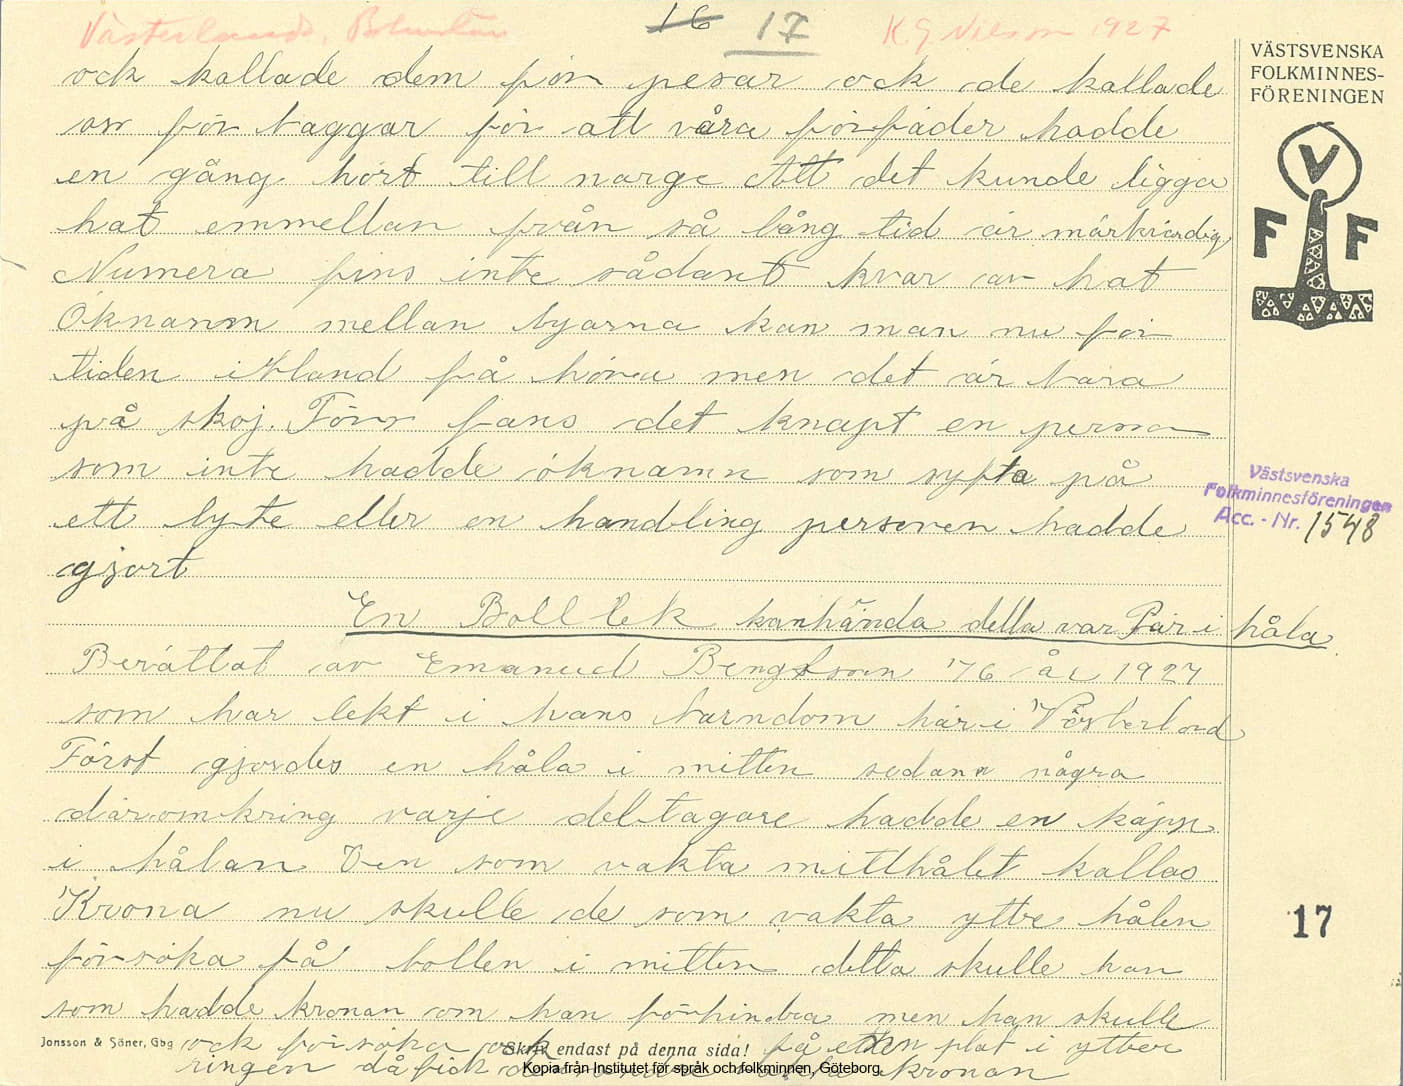 Västerlanda, Bohuslän
16 17
K. G. Nilsson 1927
VÄSTSVENSKA
FOLKMINNES-
FÖRENINGEN
V
F F
ock kallade dem för pesar ock de kallade
oss för baggar för att våra förfäder hadde
en gång hört till narge Att det kunde ligga
hat emmellan från så lång tid är märkvärdig
Numera fins inte sådant kvar av hat
Öknamn mellan byarna kan man nu för
tiden ibland få höra men det är bara
på skoj. Förr fans det knapt en person
som inte hadde öknamn som syfta på
ett lyte eller en handling personen hadde
gjort
Västsvenska
Folkminnesföreningen
Acc. - Nr. 1548
En Boll lek kanhända detta var Pär i håla
Berättat av Emanuel Bengtsson 76 år 1927
som har lekt i hans barndom här i Västerland
Först gjordes en håla i mitten sedan några
däromkring varje deltagare hadde en käpp
i hålan Den som vakta mitthålet kallas
Krona nu skulle de som vakta yttre hålen
försöka få bollen i mitten detta skulle han
som hadde kronan om han förhindra men han skulle
ock försöka ock få en plat i yttber
ringen då fick kronan
17
Jonsson & Söner, Gbg
Skriv endast på denna sida!
Kopia från Institutet för språk och folkminnen, Göteborg.